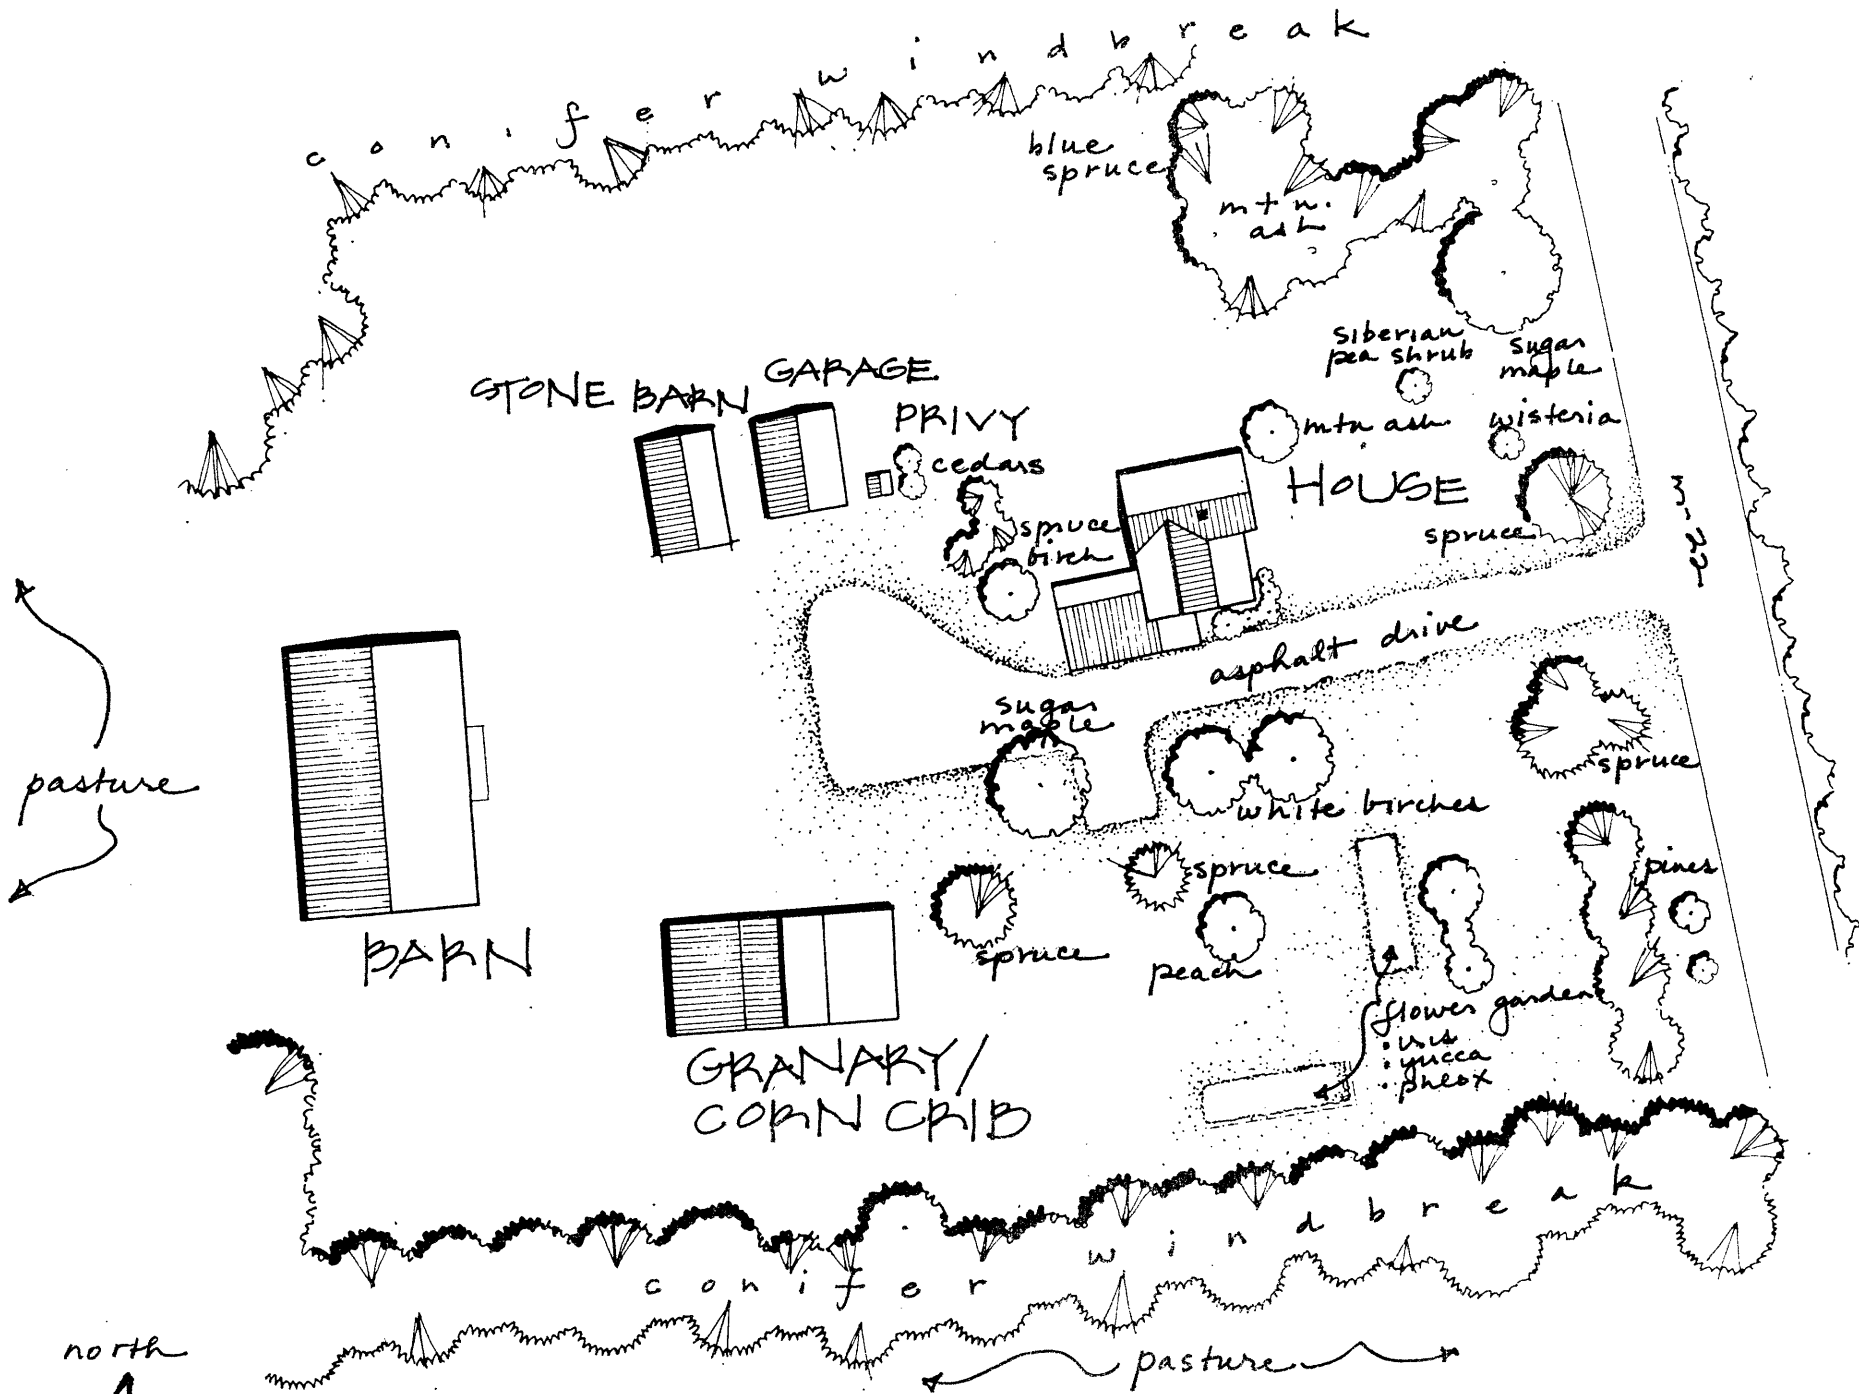 conifer windbreak
blue
spruce
mtn.
ash
siberian
pea shrub
sugar
maple
STONE BARN
GARAGE
PRIVY
cedars
mtn ash
wisteria
HOUSE
spruce
birch
spruce
M-22
asphalt drive
sugar
maple
spruce
pasture
white birches
spruce
pines
BARN
spruce
peach
flower garden
• iris
• yucca
• phlox
GRANARY/
CORN CRIB
conifer windbreak
north
pasture